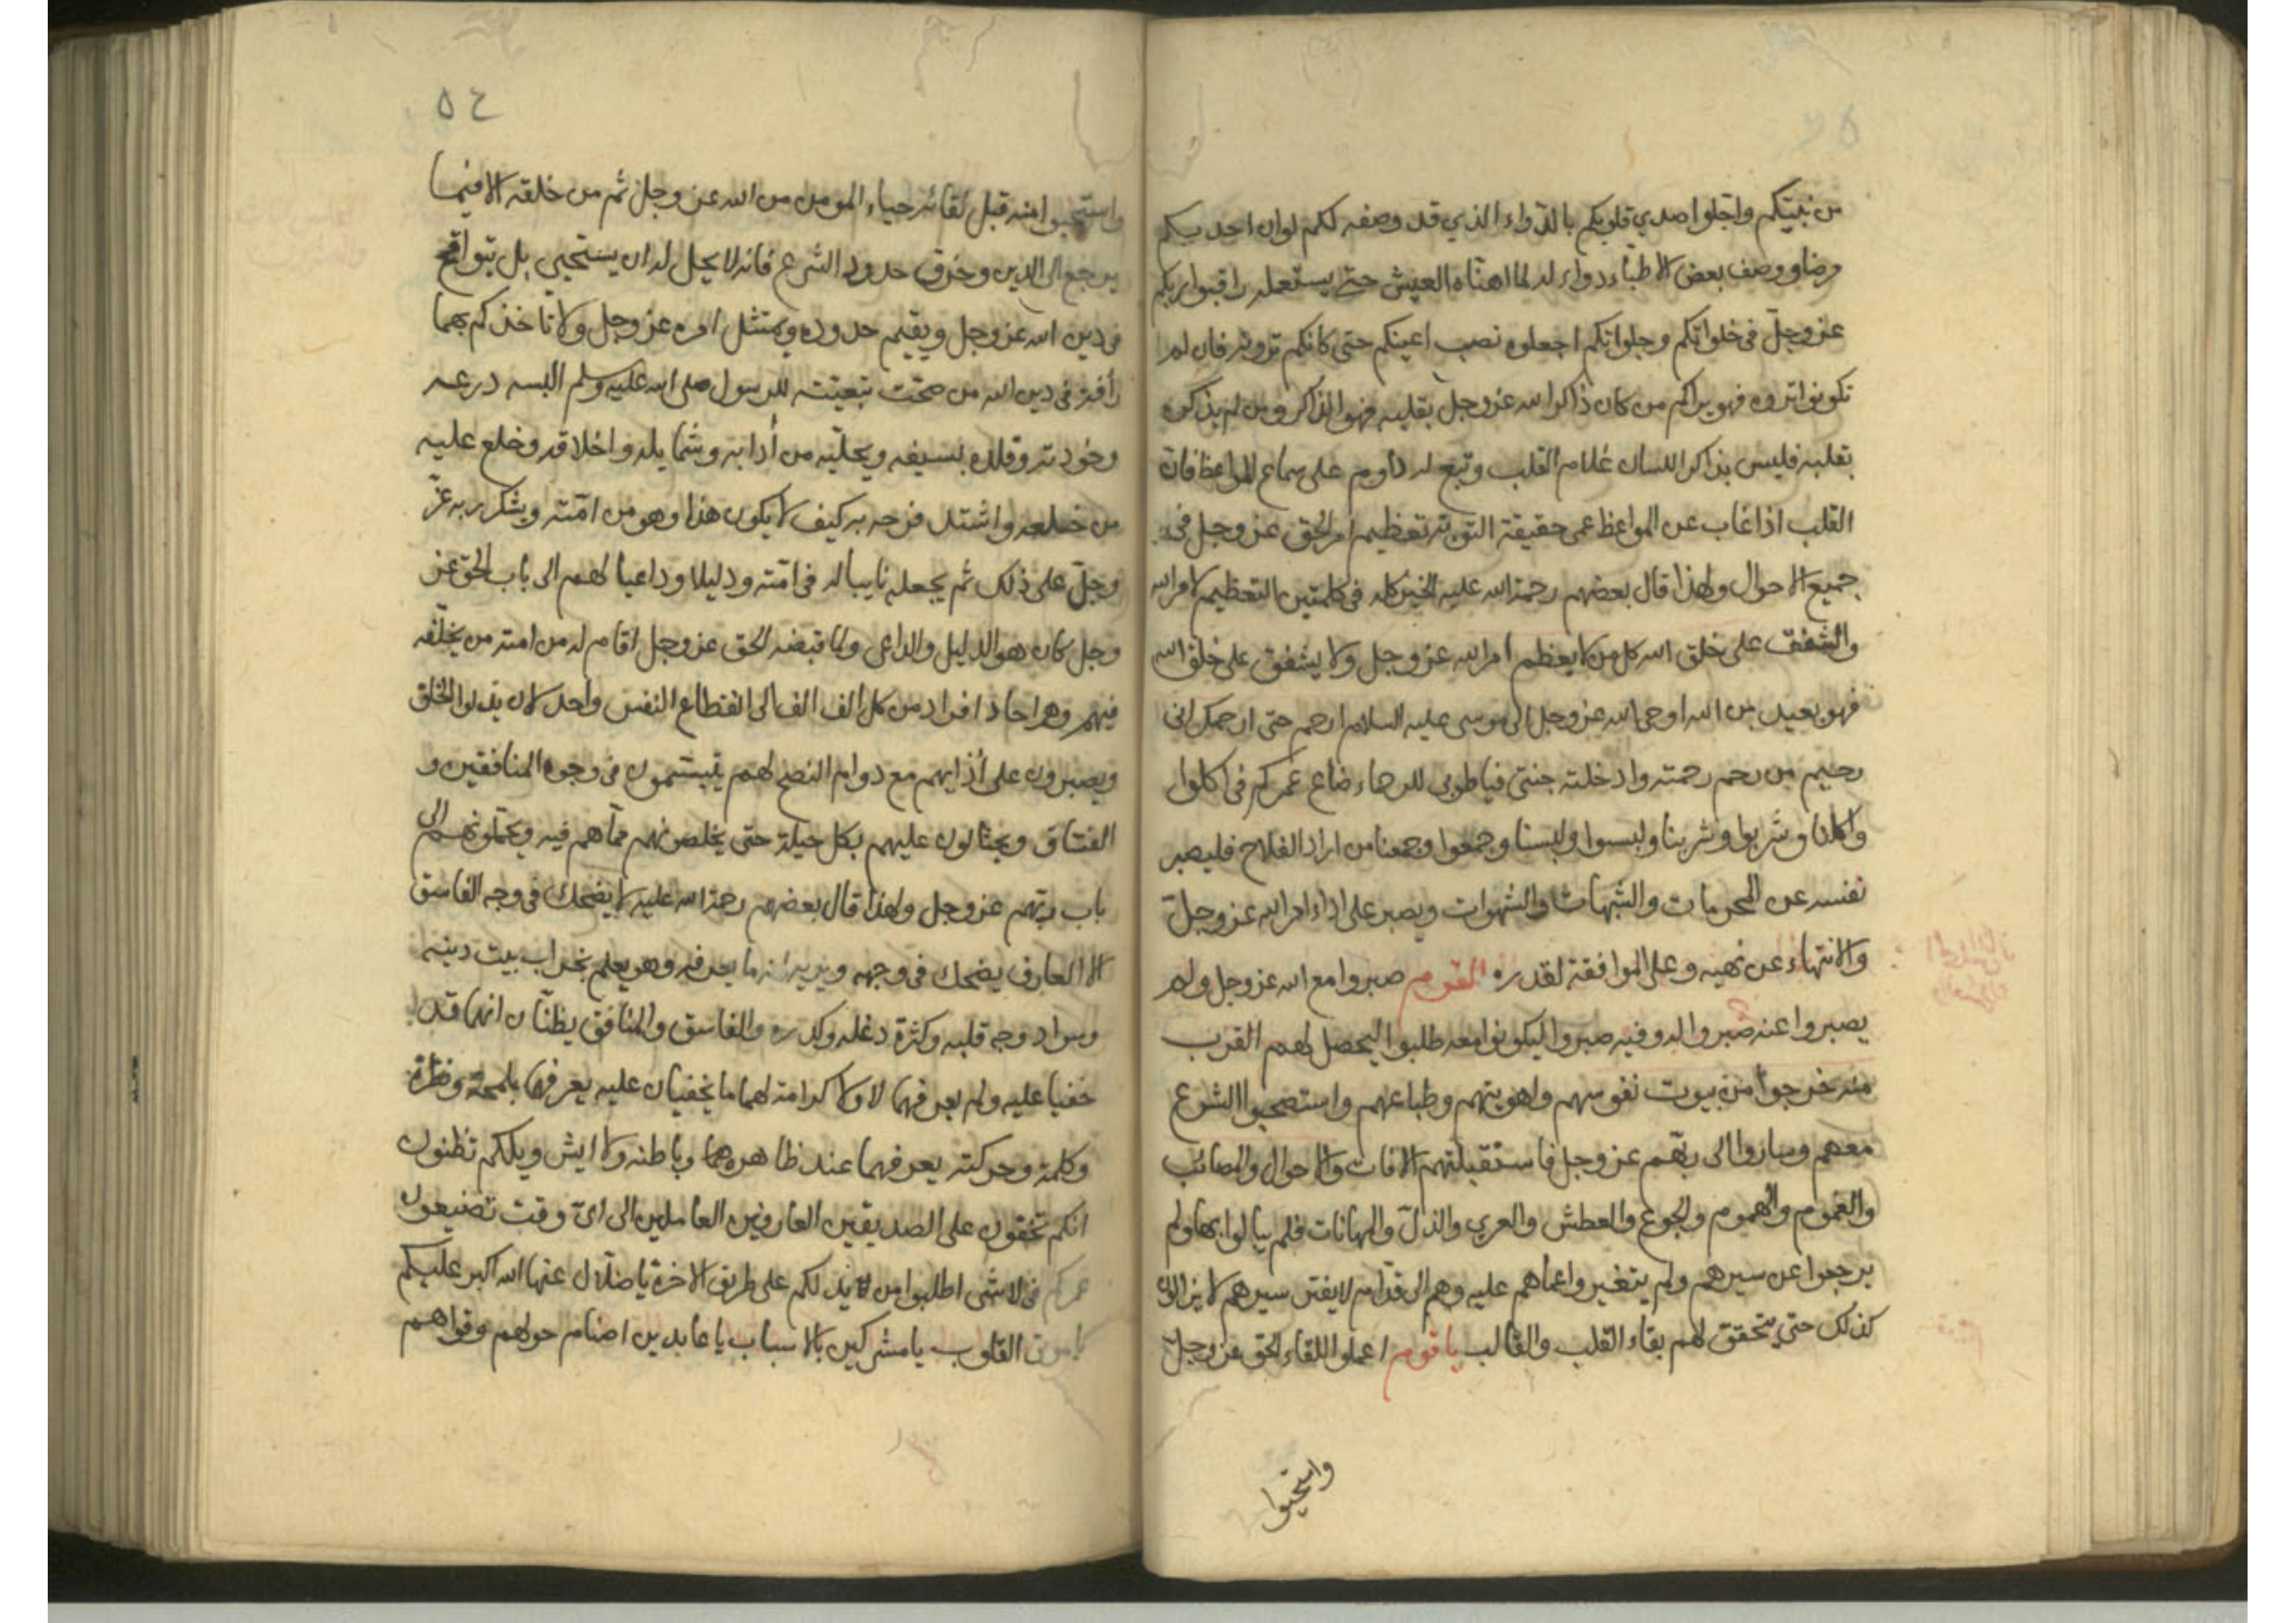 من نيتكم واجلوا صدي قلوبكم بالدواء الذي قد وصفه لكم لوان احد بكم
مرضا ووصف بعض الاطباء دواء له لما اهناه العيش حتى يستعمله راقبوا ربكم
عز وجل في خلواتكم وجلواتكم اجعلوه نصب اعينكم حتى كانكم ترونه فان لم
تكونوا تروه فهو يراكم من كان ذاكرا لله عز وجل بقلبه فهو الذاكر ومن لم يذكره
بقلبه فليس بذاكر اللسان غلام القلب وتبع له داوم على سماع المواعظ فان
القلب اذا غاب عن المواعظ عمى حقيقة التوبة تعظيم امر الحق عز وجل في
جميع الاحوال ولهذا قال بعضهم رحمة الله عليه الخير كله في كلمتين التعظيم لامر الله
والشفقة على خلق الله كل من لا يعظم امر الله عز وجل ولا يشفق على خلق الله
فهو بعيد من الله اوحى الله عز وجل الى موسى عليه السلام ارحم حتى ارحمك اني
رحيم من رحم رحمته وادخلته جنتي فيا طوبى للرحماء ضاع عمركم في اكلوا
واكلنا وشربوا وشربنا ولبسوا ولبسنا وجمعوا وجمعنا من اراد الفلاح فليصبر
نفسه عن المحرمات والشبهات والشهوات ويصبر على اداء امر الله عز وجل
والانتهاء عن نهيه وعلى الموافقة لقدره القوم صبروا مع الله عز وجل ولم
يصبروا عنه صبروا له وفيه صبروا ليكونوا معه طلبوا ليحصل لهم القرب
منه خرجوا من بيوت نفوسهم واهويتهم وطباعهم واستصحبوا الشرع
معهم وساروا الى ربهم عز وجل فاستقبلتهم الافات والاحوال والمصائب
والغموم والهموم والجوع والعطش والعري والذل والمهانات فلم يبالوا بها ولم
يرجعوا عن سيرهم ولم يتغيروا عما هم عليه وهم الى قدام لا يفتر سيرهم لا يزالون
كذلك حتى يتحقق لهم بقاء القلب والقالب يا قوم اعملوا للقاء الحق عز وجل
واستحيوا
٥٤
واستحيوا منه قبل لقائه حياء المومن من الله عز وجل ثم من خلقه الا فيما
يرجع الى الدين وخرق حدود الشرع فانه لا يحل له ان يستحيي بل يتواقح
في دين الله عز وجل ويقيم حدوده ويمتثل امره عز وجل ولا تاخذكم بهما
رأفة في دين الله من صحت تبعيته للرسول صلى الله عليه وسلم البسه درعه
وخودته وقلده بسيفه ويحليه من أدابه وشمايله واخلاقه وخلع عليه
من خلعه واشتد فرحه به كيف لا يكون هذا وهو من امته ويشكر ربه عز
وجل على ذلك ثم يجعله نايبا له في امته ودليلا وداعيا لهم الى باب الحق عز
وجل كان هو الدليل والداعي ولما قبضه الحق عز وجل اقام له من امته من يخلفه
فيهم وهم احاد افراد من كل الف الف الى انقطاع النفس واحد لان يدلوا الخلق
ويصبرون على أذايهم مع دوام النصح لهم يتبسمون في وجوه المنافقين و
الفساق ويحتالون عليهم بكل حيلة حتى يخلصونهم مما هم فيه ويحملونهم الى
باب ربهم عز وجل ولهذا قال بعضهم رحمة الله عليه لا يضحك في وجه الفاسق
الا العارف يضحك في وجهه ويريه انه ما يعرفه وهو يعلم بخراب بيت دينه
وسواد وجه قلبه وكثرة دغله وكدره والفاسق والمنافق يظنان انهما قد
خفيا عليه ولم يعرفهما لا ولا كرامة لهما ما يخفيان عليه يعرفهما بلمحة ونظرة
وكلمة وحركته يعرفهما عند ظاهرهما وباطنه ولا ايش ويلكم تظنون
انكم تخفون على الصديقين العارفين العاملين الى اى وقت تضيعون
عمركم في لا شى اطلبوا من يدلكم على طريق الاخرة يا ضلال عنها الله اكبر عليكم
القلوب يا مشركين بالاسباب يا عابدين اصنام حولهم وقواهم